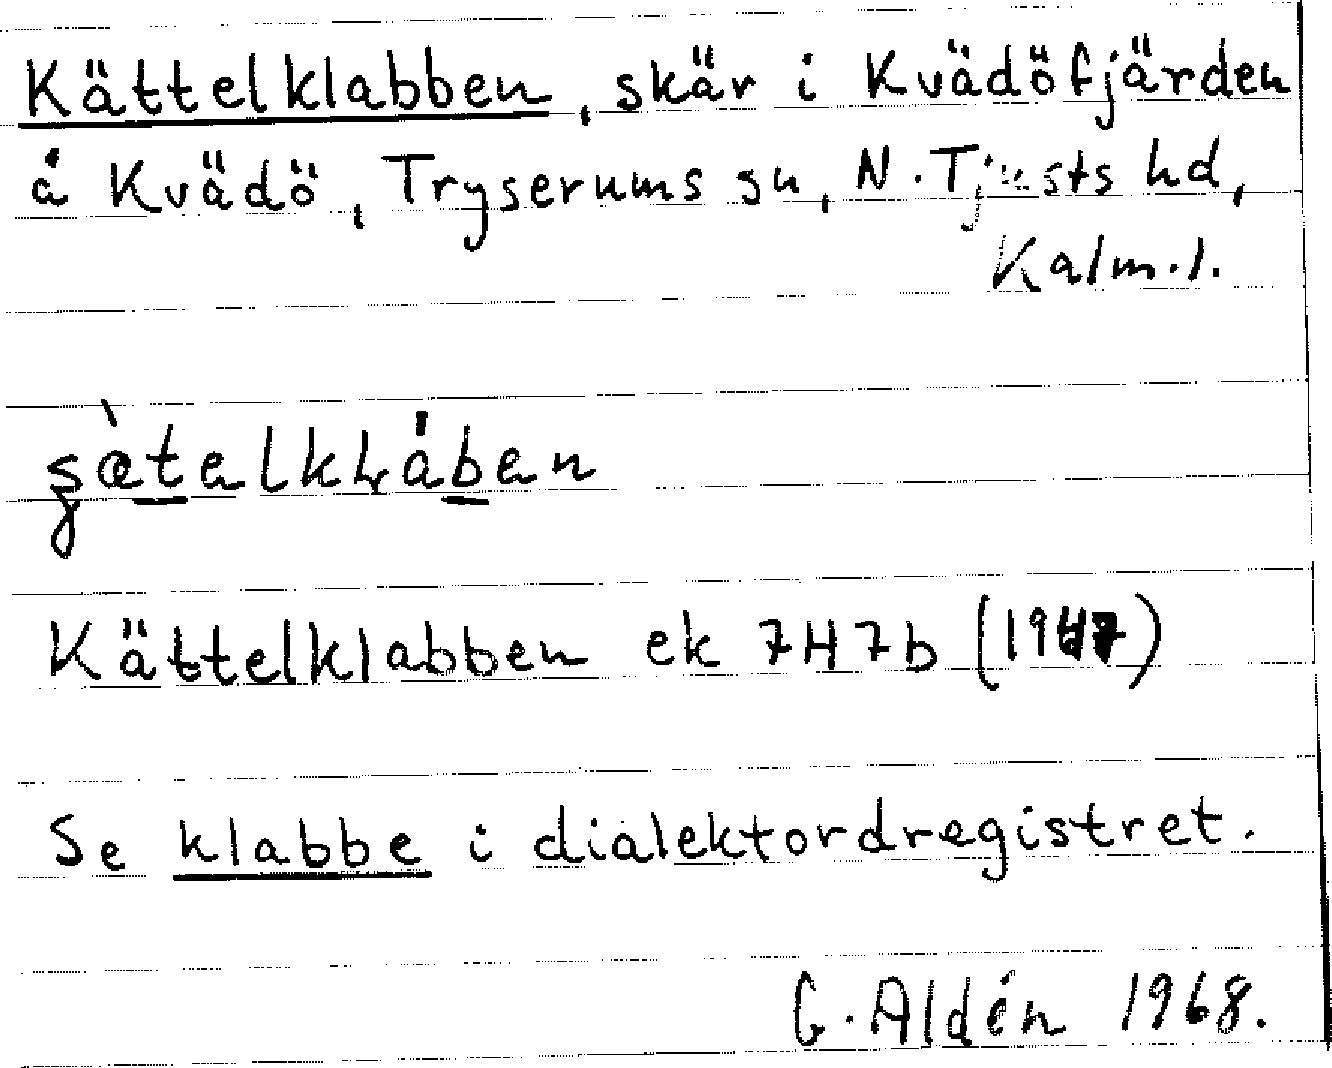 Kättelklabben, skär i Kvädöfjärden
å Kvädö, Tryserums sn, N. Tjusts hd,
Kalm. l.
Kättelklabben ek 7H7b (1947)
Se klabbe i dialektordregistret.
G. Aldén 1968.